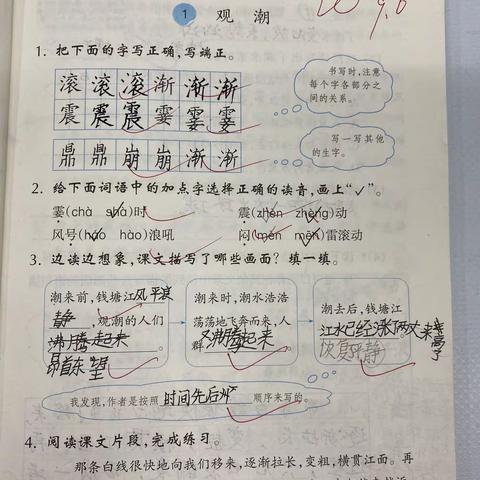 1 观 潮
1. 把下面的字写正确,写端正。
滚 滚 滚 渐 渐 渐
震 震 震 霎 霎 霎
书写时,注意
每个字各部分之
间的关系。
鼎 鼎 崩 崩 渐 渐
写一写其他
的生字。
2. 给下面词语中的加点字选择正确的读音,画上“✓”。
霎(chà shà)时 震(zhèn zhèng)动
风号(háo hào)浪吼 闷(mèn mēn)雷滚动
3. 边读边想象,课文描写了哪些画面?填一填。
潮来前,钱塘江风平浪
静,观潮的人们
沸腾起来
昂首东望。
潮来时,潮水浩浩
荡荡地飞奔而来,人
群又沸腾起来。
潮去后,钱塘江
江水已经涨了两丈来高了
恢复平静
我发现,作者是按照时间先后 顺序来写的。
4. 阅读课文片段,完成练习。
那条白线很快地向我们移来,逐渐拉长,变粗,横贯江面。再